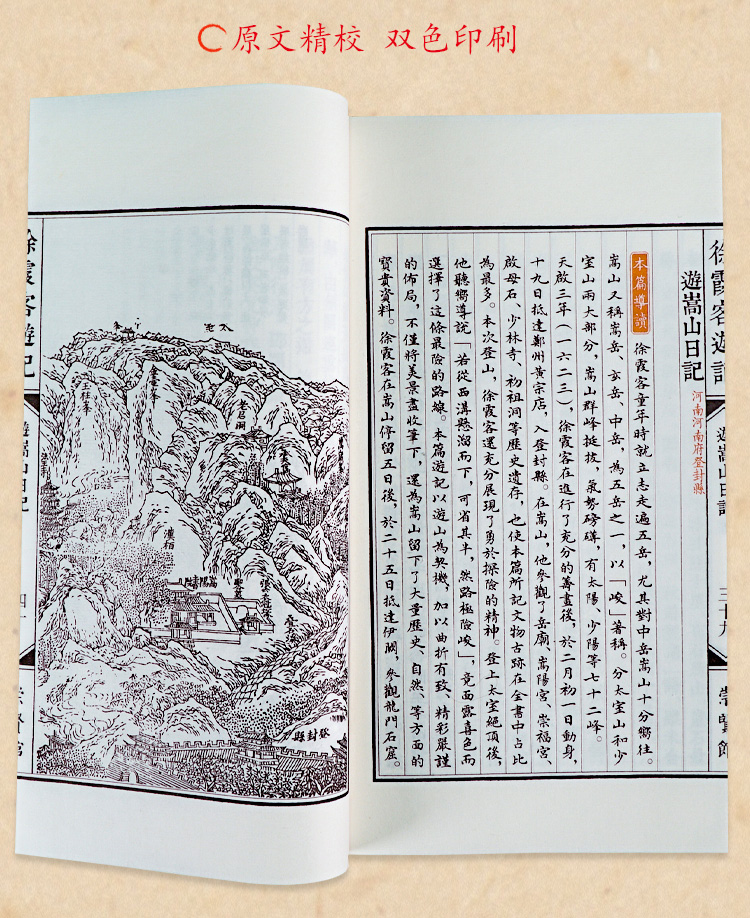 原文精校 双色印刷
徐霞客遊記
遊嵩山日記
三十九
崇賢館
遊嵩山日記
河南河南府登封縣
本篇導讀
徐霞客童年時就立志走遍五岳,尤其對中岳嵩山十分嚮往。
嵩山又稱嵩岳、玄岳、中岳,為五岳之一,以「峻」著稱。分太室山和少
室山兩大部分,嵩山群峰挺拔,氣勢磅礡,有太陽、少陽等七十二峰。
天啟三年(一六二三),徐霞客在進行了充分的籌畫後,於二月初一日動身,
十九日抵達鄭州黃宗店,入登封縣。在嵩山,他參觀了岳廟、嵩陽宮、崇福宮、
啟母石、少林寺、初祖洞等歷史遺存,也使本篇所記文物古跡在全書中占比
為最多。本次登山,徐霞客還充分展現了勇於探險的精神。登上太室絕頂後,
他聽嚮導說「若從西溝懸溜而下,可省其半,然路極險峻」,竟面露喜色而
選擇了這條最險的路線。本篇遊記以遊山為契機,加以曲折有致、精彩嚴謹
的佈局,不僅將美景盡收筆下,還為嵩山留下了大量歷史、自然、等方面的
寶貴資料。徐霞客在嵩山停留五日後,於二十五日抵達伊闕,參觀龍門石窟。
玉柱峯
漢柏
登封縣
徐霞客遊記
遊嵩山日記
崇賢館